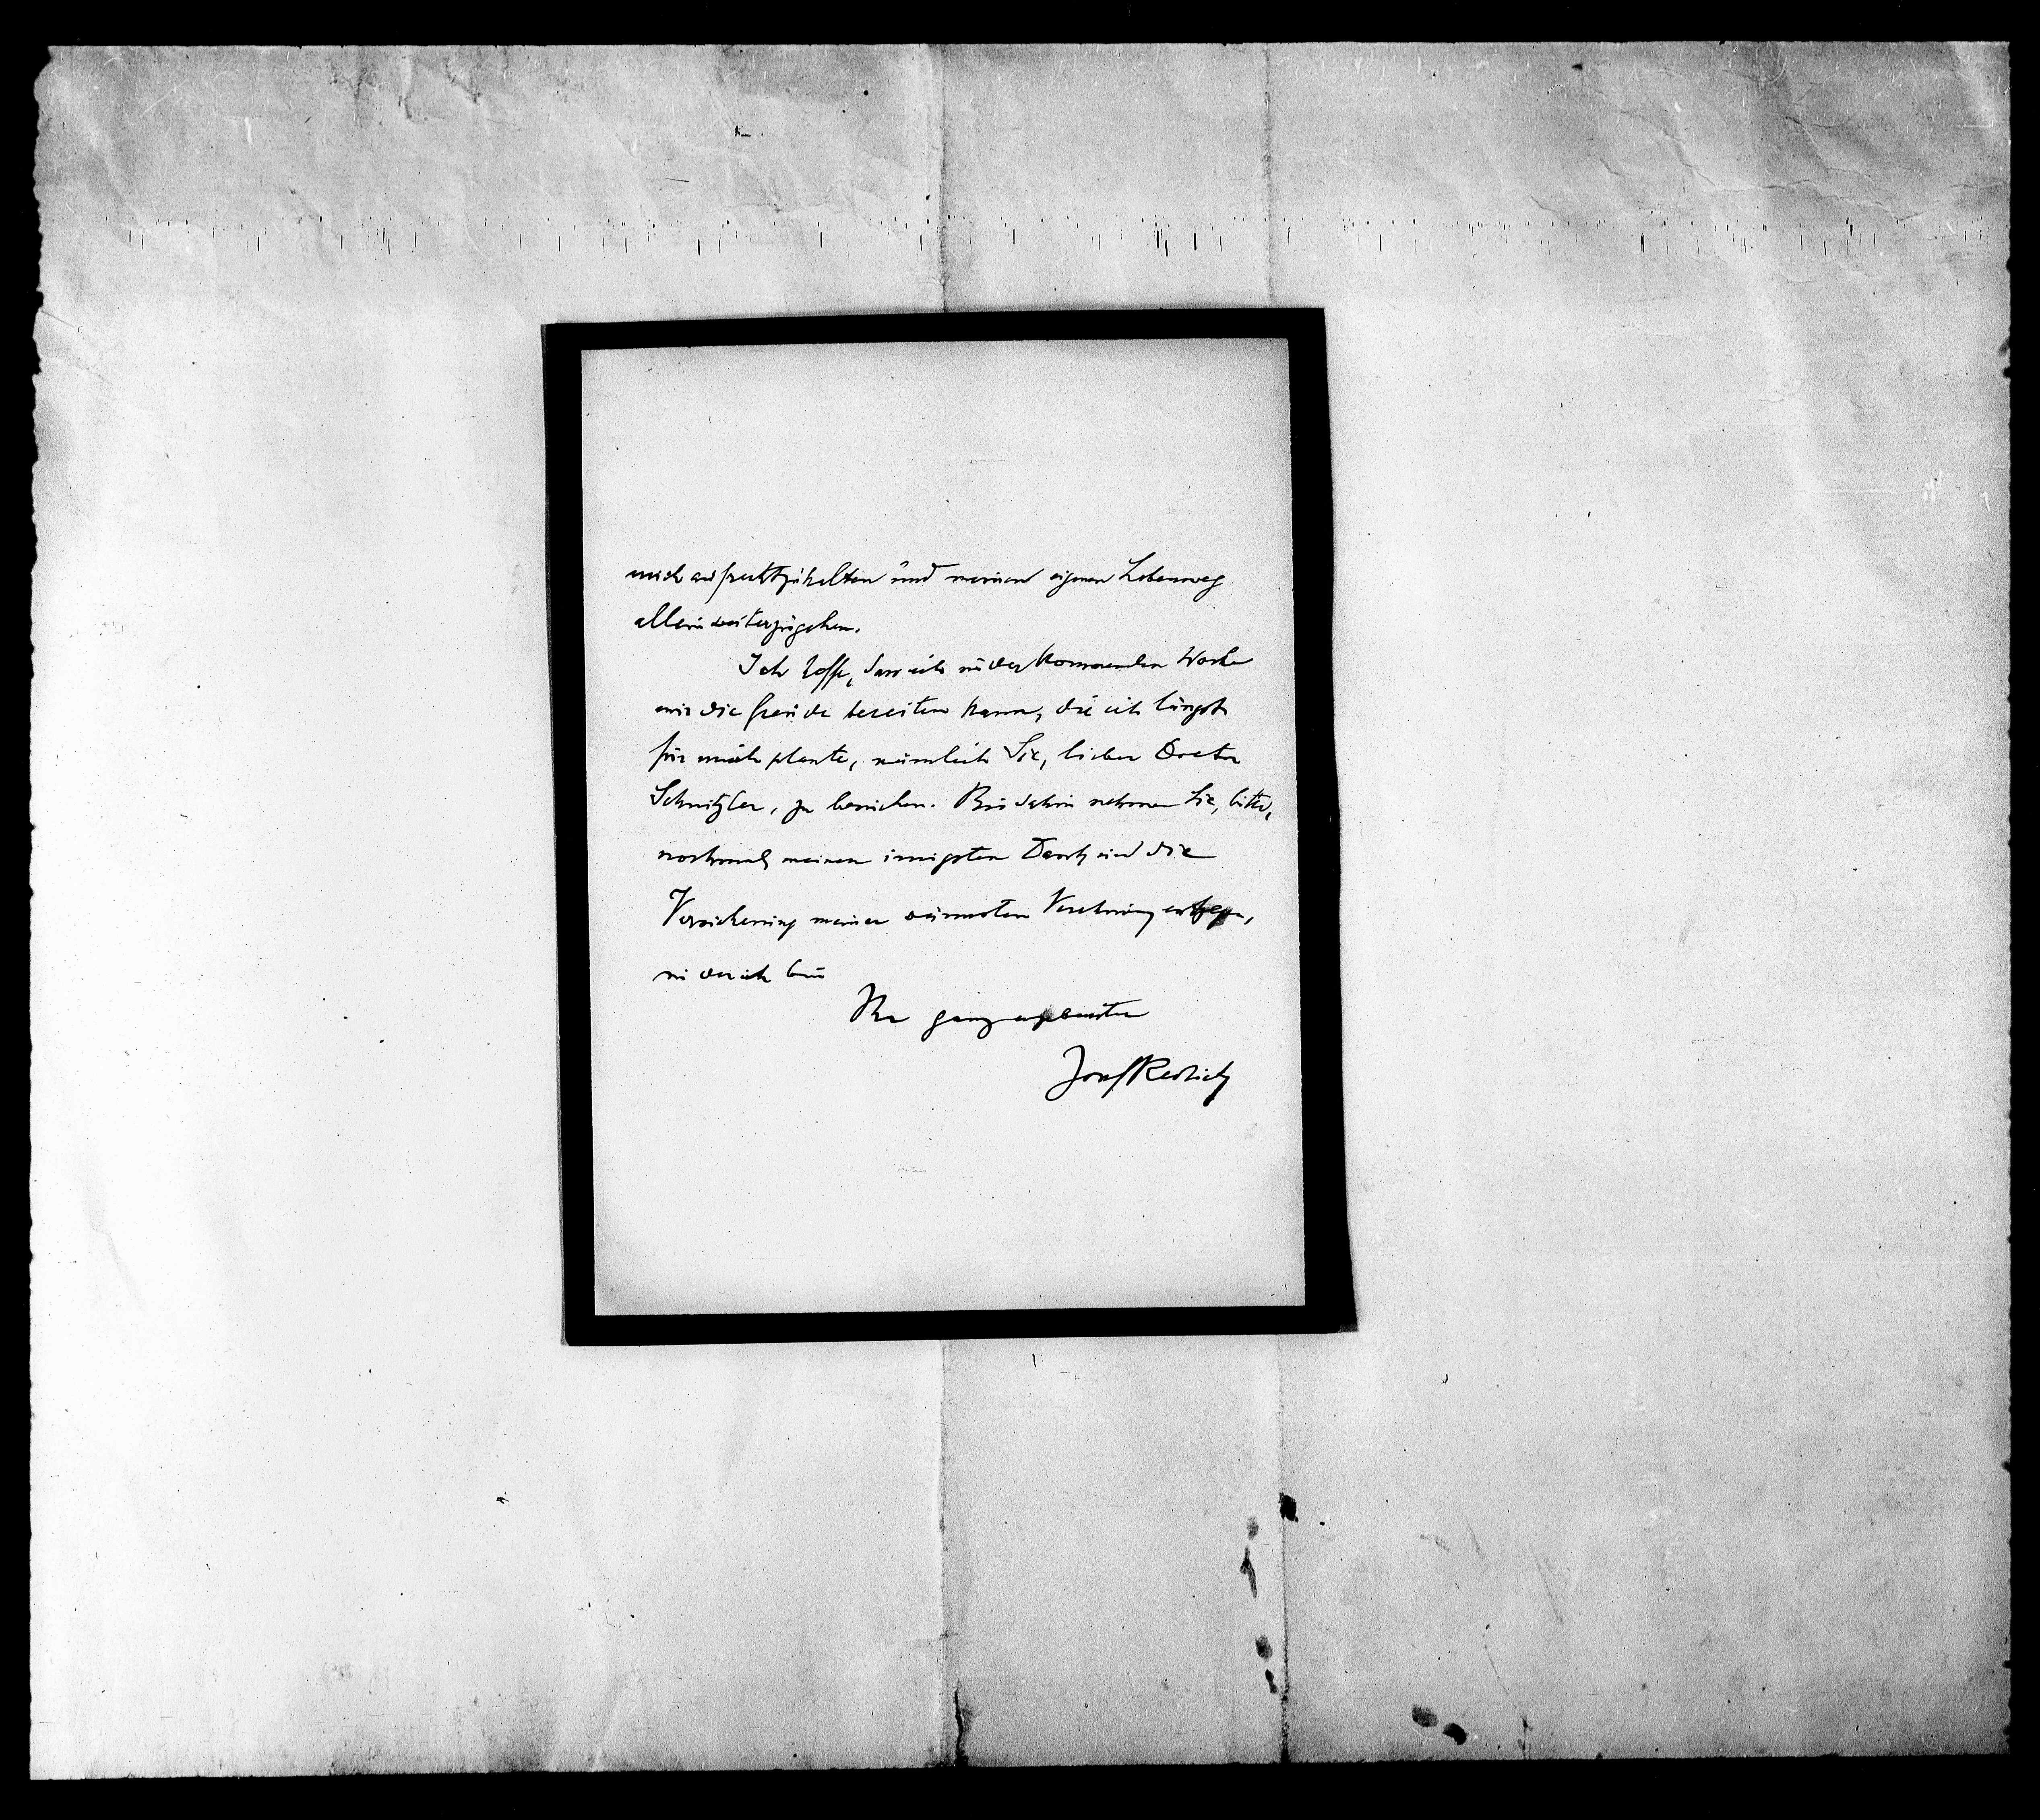 mich aufrechtzuhalten und meinen eigenen Lebensweg
allein weiterzugehen.
Ich hoffe, dass ich in der kommenden Woche
mir die Freude bereiten kann, die ich längst
für mich plante, nämlich Sie, lieber Doctor
Schnitzler, zu besuchen. Bis dahin nehmen Sie, bitte,
nochmals meinen innigsten Dank und die
Versicherung meiner wärmsten Verehrung entgegen,
in der ich bin
Ihr ganz ergebenster
Josef Redlich